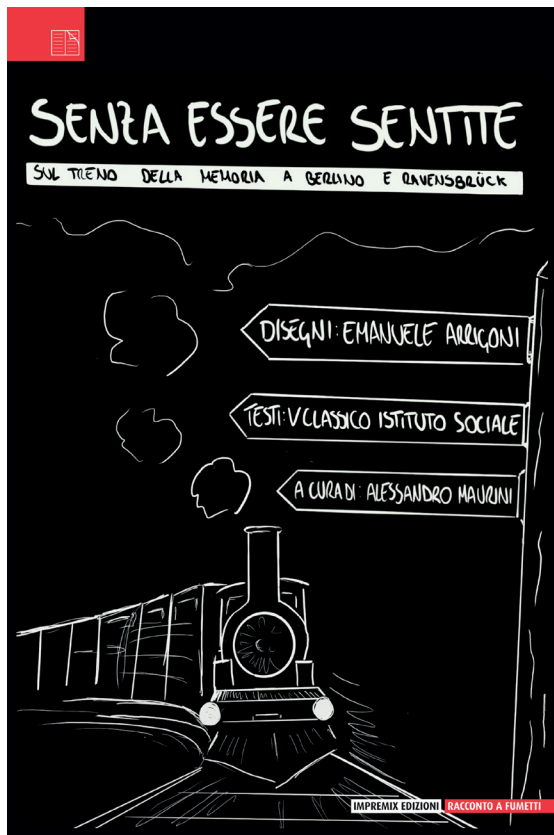 SENZA ESSERE SENTITE
SUL TRENO DELLA MEMORIA A BERLINO E RAVENSBRÜCK
DISEGNI: EMANUELE ARRIGONI
TESTI: V CLASSICO ISTITUTO SOCIALE
A CURA DI: ALESSANDRO MAURINI
IMPREMIX EDIZIONI RACCONTO A FUMETTI